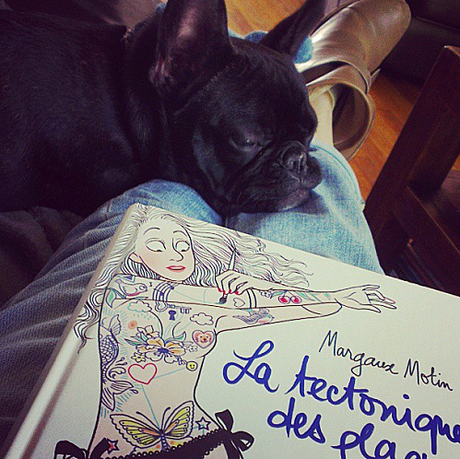 Margaux Motin
La tectonique
des